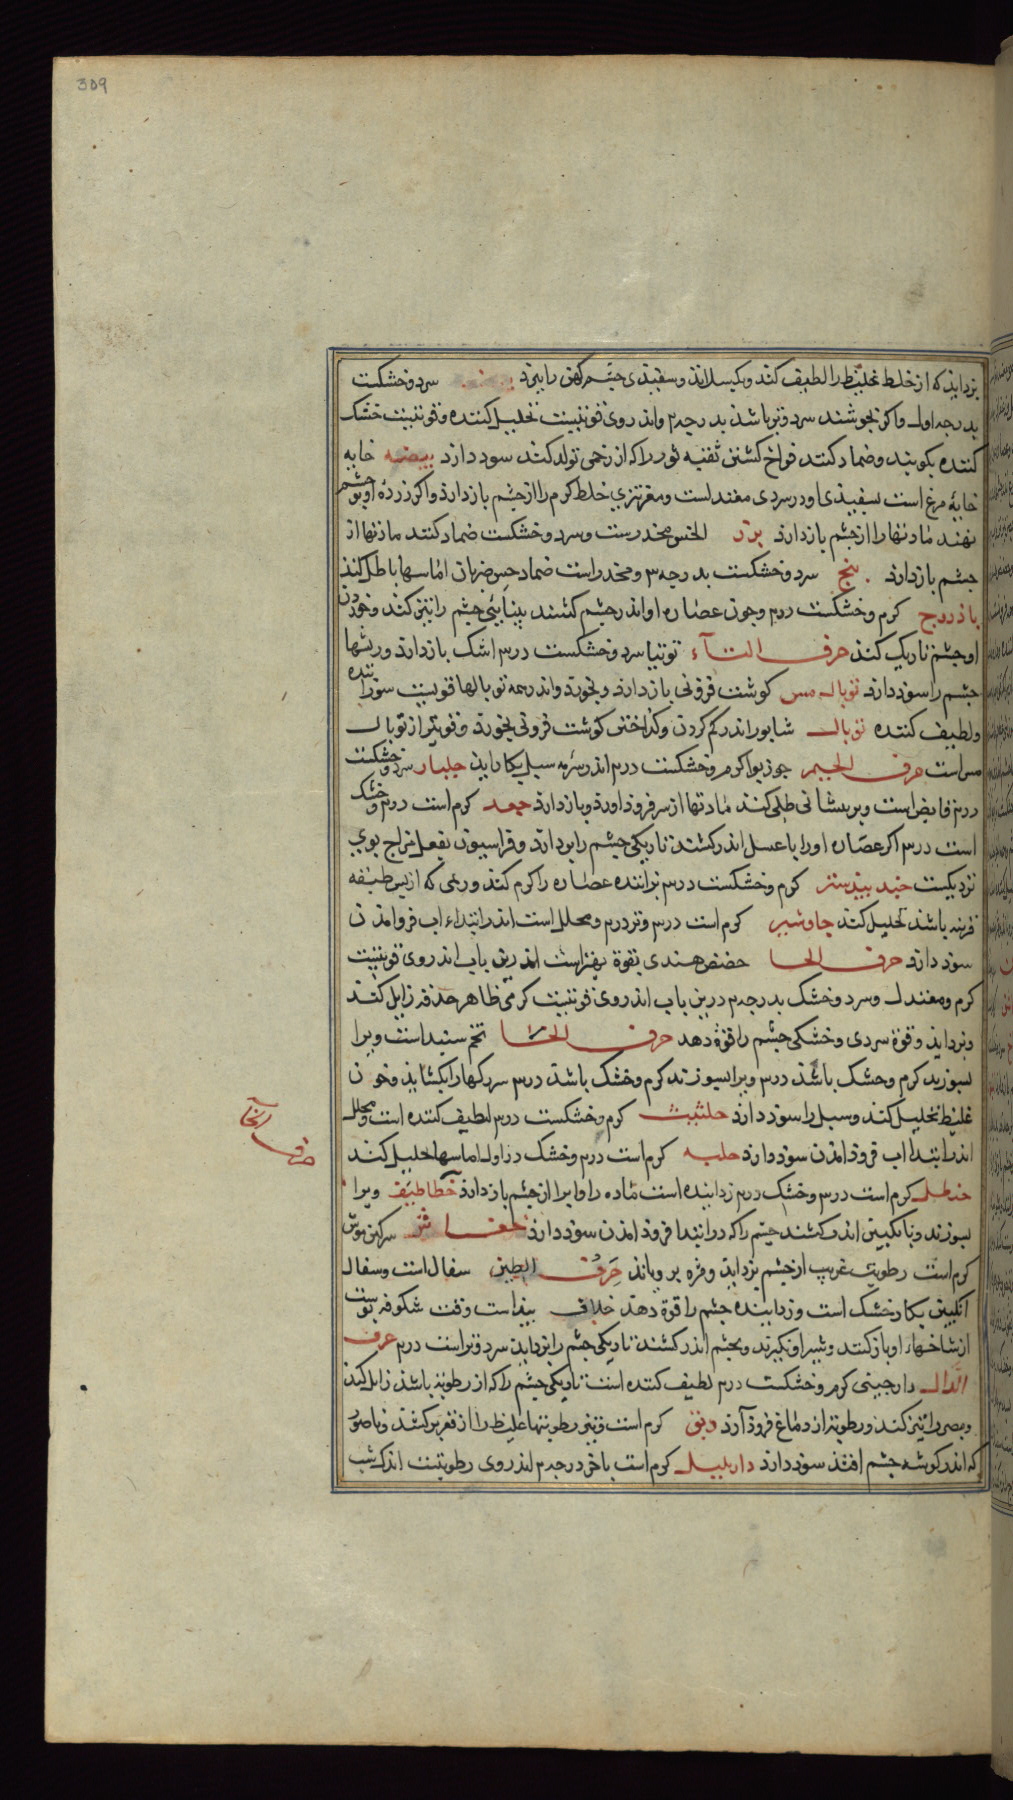 309
بزداید که از خلط غلیظ را لطیف کند و بکیسلاند و سفیذی چشم کهن را ببرد سرد و خشکست
بدرجه اول واکر بجوشند سرد و تر باشد بدرجه ۲ واندر وی قوتیست تحلیل کننده و قوتیست خشک
کننده بکوبند و ضماد کنند فراخ کشتن ثقبه نور را که از زخمی تولد کند سود دارد بیضه خایه
خایهٔ مرغ است سفیدی او در سردی معتدلست و مغری تیزی خلط کرم را از چشم باز دارد واکر زرده او بر چشم
نهند مادتها را از چشم باز دارد بزر الخس مخدرست و سرد و خشکست ضماد کنند مادتها از
چشم باز دارد بنج سرد و خشکست بدرجه ۳ و مخدر است ضماد حس ضربان اماسها باطل کند
باذروج کرم و خشکست درم وچون عصاره او اندر چشم کشند بینائی چشم را تیز کند و خوردن
او چشم تاریک کند حرف التاء توتیا سرد و خشکست درم اشک باز دارد و ریشها
چشم را سود دارد توبال مس کوشت فزونی باز دارد و بخورد و اندر همه توبالها قوتیست سوزاننده
ولطیف کننده توبال شابور اندر کم کردن و کداختن کوشت فزونی بخورد و قویتر از توبال
مس است حرف الجیم جوزبوا کرم و خشکست درم اندر سرمه سبل بکار اید جلنار سرد و خشکست
درم قابض است و بر پیشانی طلی کنند مادتها از سر فرود اورد و باز دارد جعد کرم است درم و خشک
است درم اکر عصاره او را با عسل اندر کشند تاریکی چشم را ببرد و فراسیون بفعل مزاج بوی
نزدیکست جند بیدستر کرم و خشکست درم برانندهٔ عصاره را کرم کند ورمی که از پس طبقه
قرنیه باشد تحلیل کند جاوشیر کرم است درم و تر درم و محلل است اندر ابتداء اب فرو امدن
سود دارد حرف الحا حضض هندی بقوة بهتر است اندرین باب اندر وی قوتیست
کرم و معتدل و سرد و خشک بدرجه ۲ درین باب اندر وی قوتیست کرمی ظاهر حدقه زایل کند
وبزداید و قوة سردی و خشکی چشم را قوة دهد حرف الخا تخم سپنداست ویرا
بسوزند کرم و خشک باشد درم ویرا بسوزند کرم و خشک باشد درم سر رکها را بکشاید و خون
غلیظ تحلیل کند و سبل را سود دارد حلتیت کرم و خشکست درم لطیف کننده است و محلل
اندر ابتدا اب فرود امدن سود دارد حلبه کرم است درم و خشک در اول اماسها تحلیل کند
حنظل کرم است درم و خشک درم زداینده است ماده را و او را از چشم باز دارد خطاطیف ویرا
بسوزند و با انکبین اندر کشند چشم را که در ابتدا فرود امدن سود دارد خفاش سرکین موش
کرم است رطوبت غریب از چشم بزداید و مژه برویاند خرف الطین سفال است و سفال
انکبین بکار خشک است و زداینده چشم را قوة دهد خلاف بیداست وقت شکوفه پوست
از شاخها او باز کنند و شیر او بکیرند و بچشم اندر کشند تاریکی چشم را بزداید سرد و تر است درم حرف
الدال دارچینی کرم و خشکست درم لطیف کننده است تاریکی چشم را که از رطوبة باشد زایل کند
وبصر را تیز کند و رطوبتر از دماغ فرود آرد دبق کرم است و تیز رطوبتها غلیظ را از قعر بر کشد و ناصور
که اندر کوشه چشم افتد سود دارد دار بلبل کرم است باخر درجه ۳ اندر وی رطوبتست اندک شب
حرف الخآ